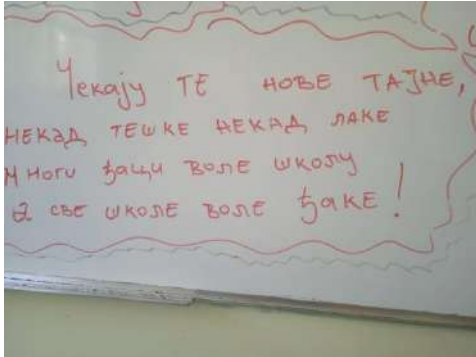 Чекају ТЕ НОВЕ ТАЈНЕ,
НЕКАД ТЕШКЕ НЕКАД ЛАКЕ
Многи ђаци ВОЛЕ ШКОЛУ
а СВЕ ШКОЛЕ ВОЛЕ ЂАКЕ!